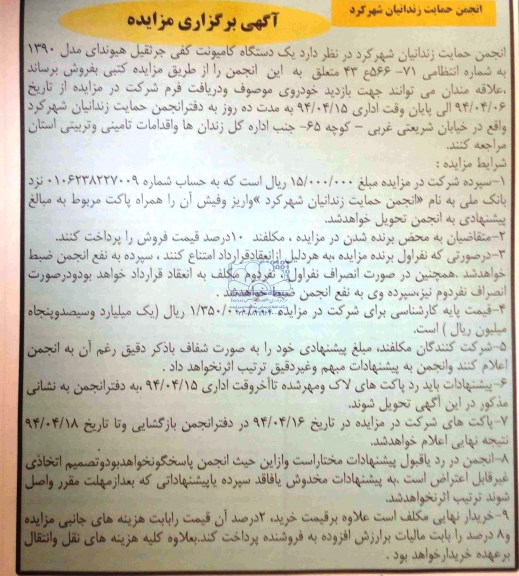 انجمن حمایت زندانیان شهرکرد
آگهی برگزاری مزایده
انجمن حمایت زندانیان شهرکرد در نظر دارد یک دستگاه کامیونت کفی جرثقیل هیوندای مدل ۱۳۹۰
به شماره انتظامی ۷۱- ۵۶۶ع ۴۳ متعلق به این انجمن را از طریق مزایده کتبی بفروش برساند
،علاقه مندان می توانند جهت بازدید خودروی موصوف ودریافت فرم شرکت در مزایده از تاریخ
۹۴/۰۴/۰۶ الی پایان وقت اداری ۹۴/۰۴/۱۵ به مدت ده روز به دفترانجمن حمایت زندانیان شهرکرد
واقع در خیابان شریعتی غربی – کوچه ۶۵- جنب اداره کل زندان ها واقدامات تامینی وتربیتی استان
مراجعه کنند.
شرایط مزایده :
۱-سپرده شرکت در مزایده مبلغ ۱۵/۰۰۰/۰۰۰ ریال است که به حساب شماره ۰۱۰۶۲۳۸۲۲۷۰۰۹ نزد
بانک ملی به نام «انجمن حمایت زندانیان شهرکرد »واریز وفیش آن را همراه پاکت مربوط به مبالغ
پیشنهادی به انجمن تحویل خواهدشد.
۲-متقاضیان به محض برنده شدن در مزایده ، مکلفند ۱۰درصد قیمت فروش را پرداخت کنند.
۳-درصورتی که نفراول برنده مزایده ،به هردلیل ازانعقادقرارداد امتناع کنند ، سپرده به نفع انجمن ضبط
خواهدشد .همچنین در صورت انصراف نفراول ، نفردوم مکلف به انعقاد قرارداد خواهد بودودرصورت
انصراف نفردوم نیز،سپرده وی به نفع انجمن ضبط خواهدشد .
۴-قیمت پایه کارشناسی برای شرکت در مزایده ۱/۳۵۰/۰۰۰/۰۰۰ ریال (یک میلیارد وسیصدوپنجاه
میلیون ریال ) است.
۵-شرکت کنندگان مکلفند، مبلغ پیشنهادی خود را به صورت شفاف باذکر دقیق رقم آن به انجمن
اعلام کنند وانجمن به پیشنهادات مبهم وغیردقیق ترتیب اثرنخواهد داد .
۶-پیشنهادات باید رد پاکت های لاک ومهرشده تاآخروقت اداری ۹۴/۰۴/۱۵ ،به دفترانجمن به نشانی
مذکور در این آگهی تحویل شوند.
۷-پاکت های شرکت در مزایده در تاریخ ۹۴/۰۴/۱۶ در دفترانجمن بازگشایی وتا تاریخ ۹۴/۰۴/۱۸
نتیجه نهایی اعلام خواهدشد.
۸-انجمن در رد یاقبول پیشنهادات مختاراست وازاین حیث انجمن پاسخگونخواهدبودوتصمیم اتخاذی
غیرقابل اعتراض است .به پیشنهادات مخدوش یافاقد سپرده یاپیشنهاداتی که بعدازمهلت مقرر واصل
شوند ترتیب اثرنخواهدشد.
۹-خریدار نهایی مکلف است علاوه برقیمت خرید، ۲درصد آن قیمت رابابت هزینه های جانبی مزایده
و۸ درصد را بابت مالیات برارزش افزوده به فروشنده پرداخت کند.بعلاوه کلیه هزینه های نقل وانتقال
برعهده خریدارخواهد بود .